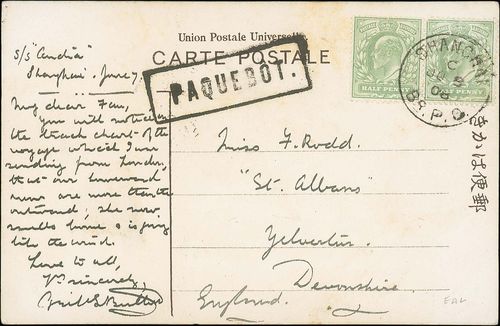 Union Postale Universelle
CARTE POSTALE
PAQUEBOT.
HALF PENNY
HALF PENNY
SHANGHAI
C
08
BR. P.O.
きかは便郵
S/S "Candia"
Shanghai. June 7
My dear Fan,
You will notice in
the track chart of the
voyage which I am
sending from London,
that our homeward
runs are more than the
outward, she now
smells home & is going
like the wind.
Love to all,
Yrs sincerely,
Miss F. Rodd.
"St. Albans"
Yelverton.
Devonshire.
England.
EAL